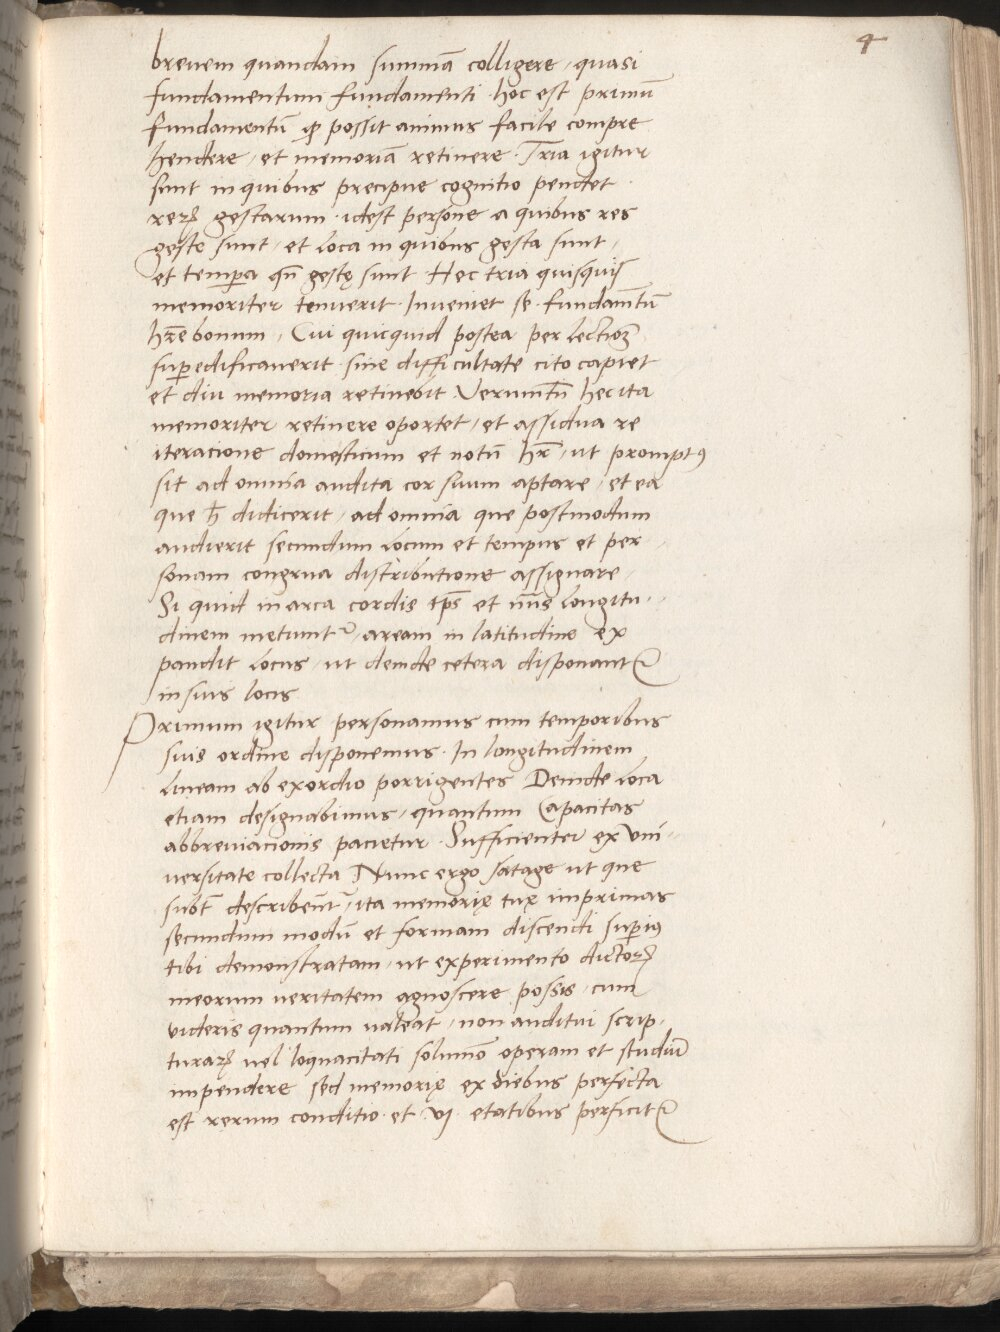 4
breuem quandam summã colligere / quasi
fundamentum fundamenti · hoc est primũ
fundamentũ ꝙ possit animus facile compre
hendere / et memoriã retinere · Tria igitur
sunt in quibus precipue cognitio pendet
reꝝ gestarum · idest persone a quibus res
geste sunt / et loca in quibus gesta sunt /
et tempa qñ gestę sunt Hec tria quisquis
memoriter tenuerit · Inueniet se · fundam̃tũ
hr̃e bonum / Cui quicquid postea per lectioꝫ
supedificauerit sine difficultate cito capiet
et diu memoria retinebit Verumtñ hec ita
memoriter retinere oportet / et assidua re
iteracione domesticum et notũ hr̃ / ut promptꝰ
sit ad omnia audita cor suum aptare / et ea
que h̄ didicerit / ad omnia que postmodum
audierit secundum locum et tempus et per
sonam congrua distributione assignare /
Si quid in arca cordis ip̃s et longitu-
dinem metiunt᷑ / aream in latitudine ex
pandit locus / ut deinde cetera disponant᷑
in suis locis
Primum igitur personamus cum temporibus
suis ordine disponemus · In longitudinem
lineam ab exordio porrigentes Deinde loca
etiam designabimus / quantum Capacitas
abbreuiacionis pacietur · Sufficienter ex Vni-
uersitate collecta Nunc ergo satage ut que
subt̃ describent᷑ / ita memorię tuę imprimas
secundum modũ et formam discendi supiꝰ
tibi demonstratam / ut experimento dictoꝝ
meorum ueritatem agnoscere possis / cum
videris quantum ualeat / non auditui scrip-
turaꝝ uel loquacitati solum̃o operam et studiũ
impendere sed memorię ex diebus perfecta
est rerum conditio · et vj · etatibus perficit᷑